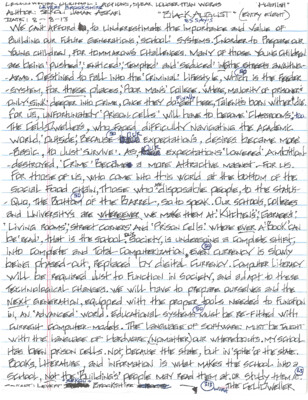 We can't afford to underestimate the importance and value of
Building our future generations, school systems. In order to prepare our
Young children, for tommorrows challenges. Many of those young children
are being 'pushed', enticed, tempted and seduced into the streets awaiting
Arms. Destined to fall into the 'Criminal' lifestyle, which is the feeder
system, for these places; Poor man's college. Where, majority of prisoners
only sink deeper into crime, once they do get here, Talents born withered.
For us, unfortunately 'prison cells' will have to become 'classrooms', to
The Cell Dwellers, who faced difficulty navigating the academic
world, outside; Because expectations, desires became more
Basic, to just survive. As, expectations lowered, ambition
destroyed, 'Crime' became a more attractive market - for us.
For those of us, who come into this world at the bottom of the
social food chain, those who disposable people, to the status-
quo, the bottom of the barrel, so to speak. Our schools, colleges
and university's are wherever we make them at: 'Kitchens', 'Garages',
'Living rooms', 'Street corners' and 'Prison cells'. Where ever a 'Book' can
be 'read', that is the school. Society, is undergoing a complete shift,
into complete and total computerization, even currency is slowly
being phased out, replaced by digital currency. Computer literacy
will be required just to function in society, and adapt to these
technological changes. We will have to prepare ourselves and the
next generation, equipped with the proper tools needed to function
in, an 'advanced' world. Educational systems must be re-fitted with
current computer models. The language of software must be taught
with the language of hardware, (no matter) our whereabouts. My school
has been prison cells. Not, because the state, but in 'spite' of the state.
Books, literature, and information is what makes the school into a
school, not the 'Buildings' people may read them at, or study them.
The Cell Dweller